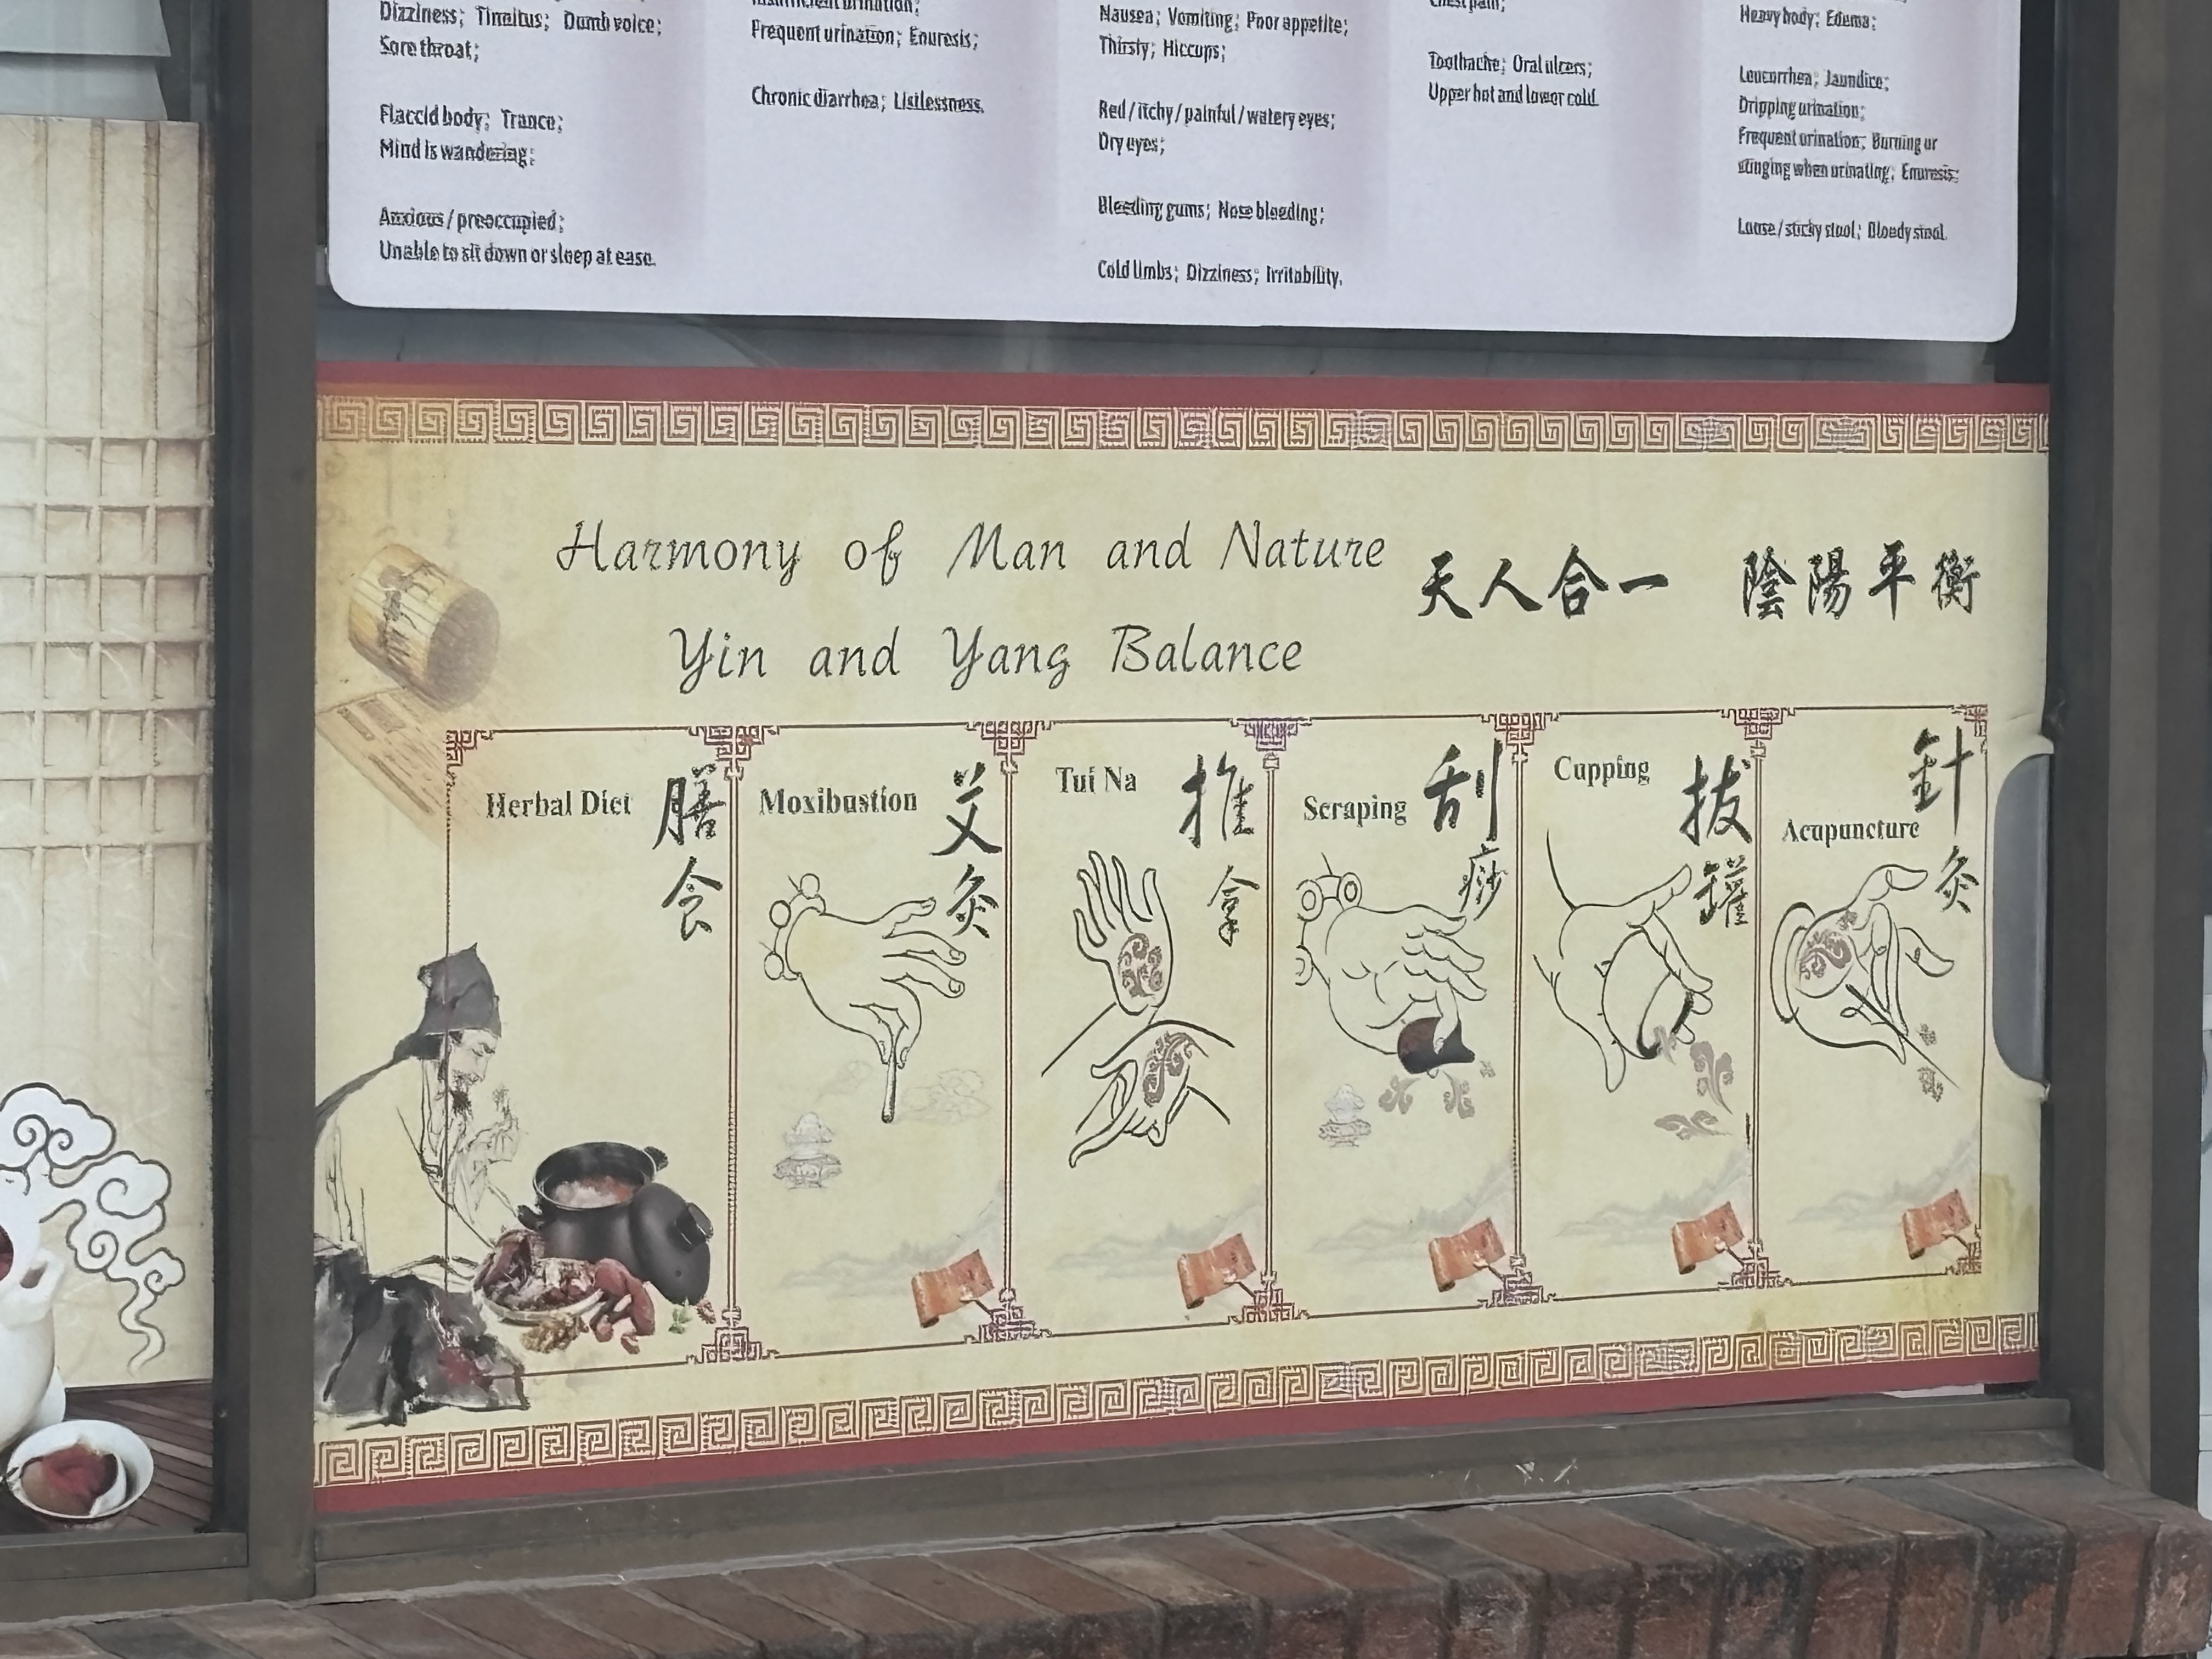 Dizziness; Tinnitus; Dumb voice;
Sore throat;
Flaccid body; Trance;
Mind is wandering;
Anxious / preoccupied;
Unable to sit down or sleep at ease.
Insufficient urination;
Frequent urination; Enuresis;
Chronic diarrhea; Listlessness.
Nausea; Vomiting; Poor appetite;
Thirsty; Hiccups;
Red / itchy / painful / watery eyes;
Dry eyes;
Bleeding gums; Nose bleeding;
Cold limbs; Dizziness; Irritability.
Chest pain;
Toothache; Oral ulcers;
Upper hot and lower cold.
Heavy body; Edema;
Leucorrhea; Jaundice;
Dripping urination;
Frequent urination; Burning or
stinging when urinating; Enuresis;
Loose / sticky stool; Bloody stool.
Harmony of Man and Nature
Yin and Yang Balance
天人合一 陰陽平衡
Herbal Diet
膳食
Moxibustion
艾灸
Tui Na
推拿
Scraping
刮痧
Cupping
拔罐
Acupuncture
針灸